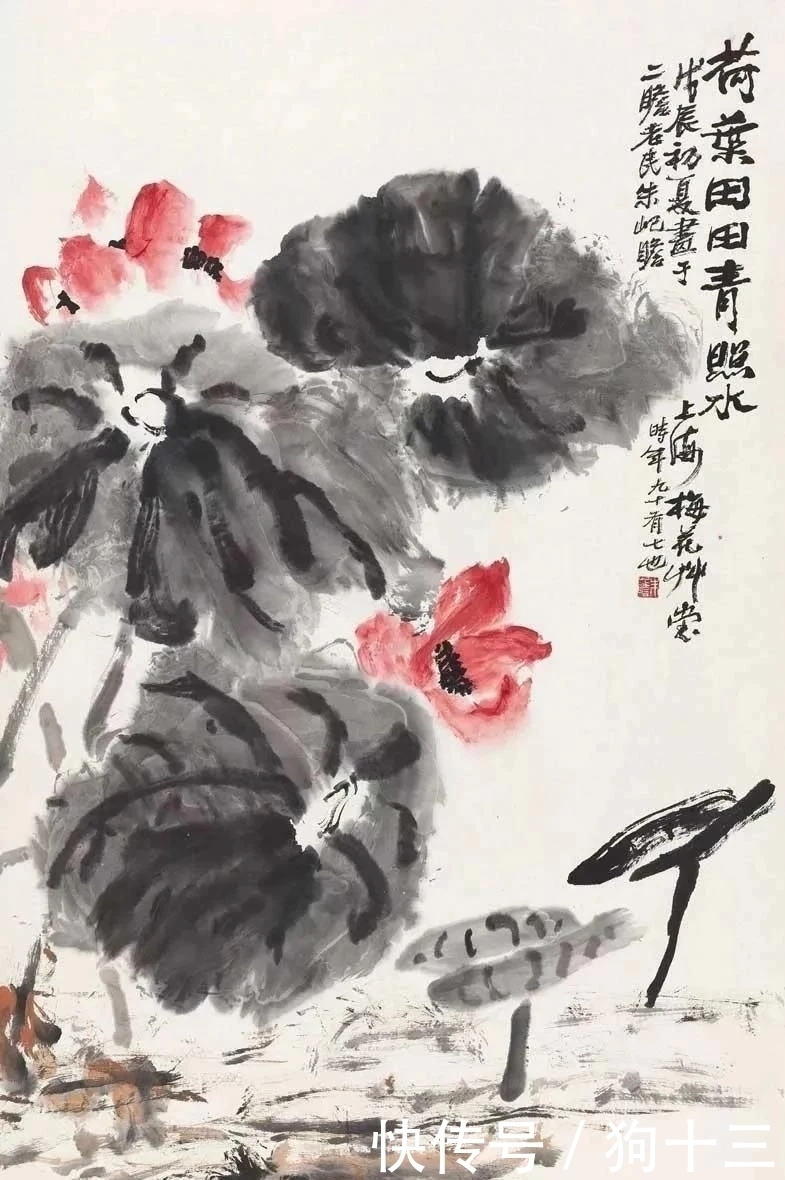 荷葉田田青照水
戊辰初夏畫于
上海梅花艸堂
二瞻老民朱屺瞻
時年九十有七也
快传号/狗十三